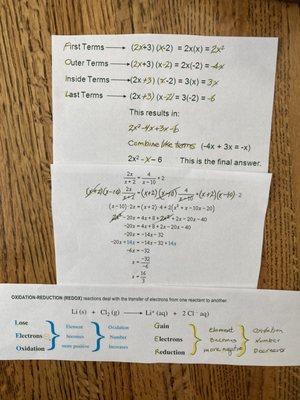 First Terms → (2x+3)(x-2) = 2x(x) = 2x²
Outer Terms → (2x+3)(x-2) = 2x(-2) = -4x
Inside Terms → (2x+3)(x-2) = 3(x) = 3x
Last Terms → (2x+3)(x-2) = 3(-2) = -6
This results in:
2x²-4x+3x-6
Combine like terms (-4x + 3x = -x)
2x² - x - 6 This is the final answer.
2x/(x+2) = 4/(x-10) + 2
(x+2)(x-10) 2x/(x+2) = (x+2)(x-10) 4/(x-10) + (x+2)(x-10)·2
(x-10)·2x = (x+2)·4+2(x²+x-10x-20)
2x²-20x = 4x+8+2x²+2x-20x-40
-20x = 4x+8+2x-20x-40
-20x = -14x-32
-20x+14x = -14x-32+14x
-6x = -32
x = -32/-6
x = 16/3
OXIDATION-REDUCTION (REDOX) reactions deal with the transfer of electrons from one reactant to another.
Li (s) + Cl₂ (g) → Li⁺ (aq) + 2 Cl⁻ (aq)
Lose Element Oxidation Gain Element Oxidation
Electrons becomes Number Electrons Becomes Number
Oxidation more positive Increases Reduction more negative Decreases